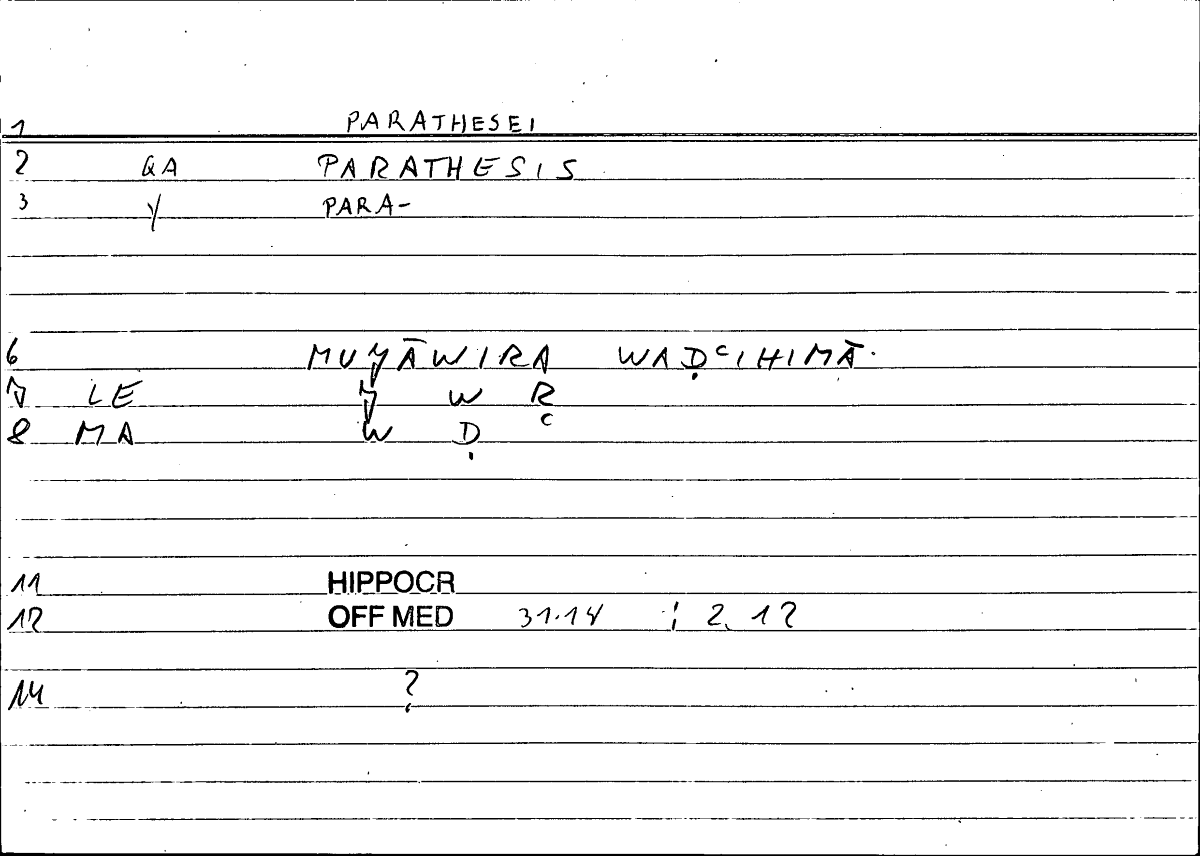 1 PARATHESEI
2 QA PARATHESIS
3 Y PARA-
6 MUǰĀWIRA WAḌʿIHIMĀ.
7 LE ǰ W R
8 MA W Ḍ ʿ
11 HIPPOCR
12 OFF MED 31.14 ; 2, 12
14 ?